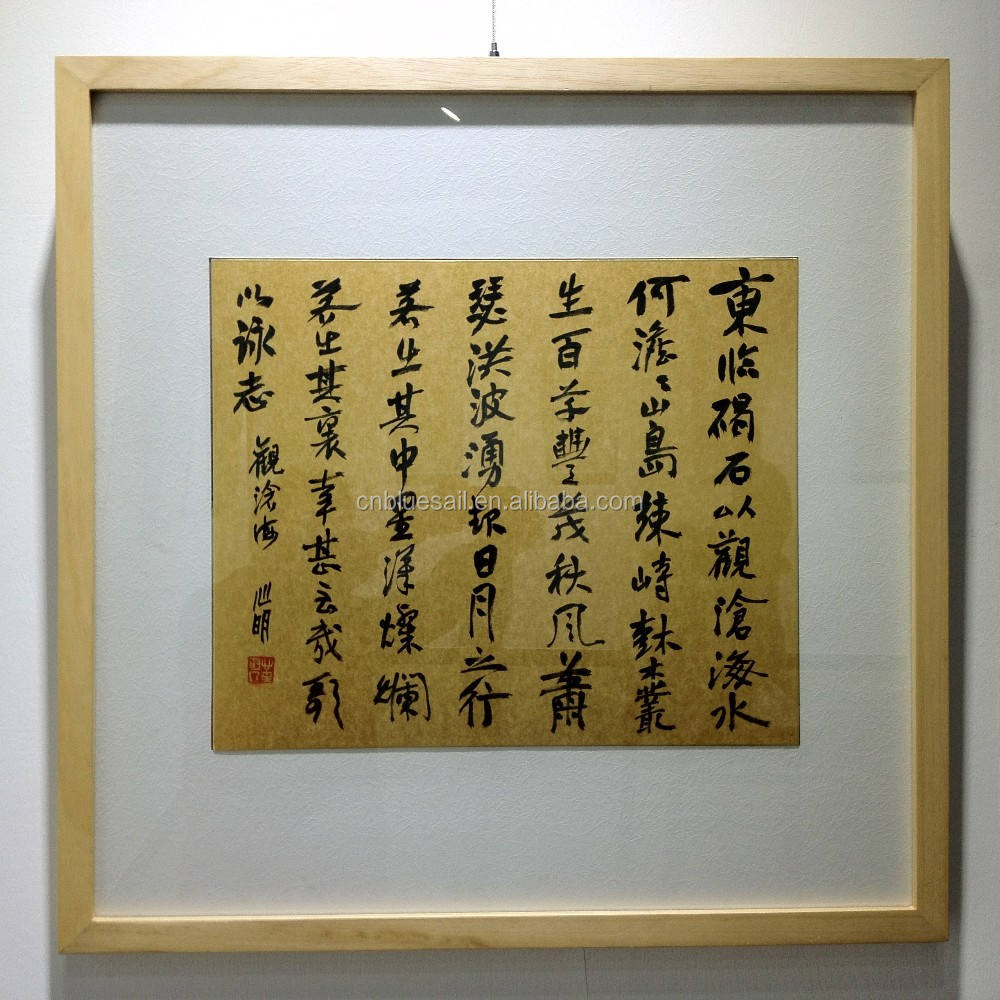 東临碣石以觀滄海水
何澹〻山島竦峙樹木叢
生百草豐〻茂秋风蕭
瑟洪波湧起日月之行
若出其中星漢燦爛
若出其裏幸甚至哉歌
以詠志
觀滄海
cnbluesail.en.alibaba.com